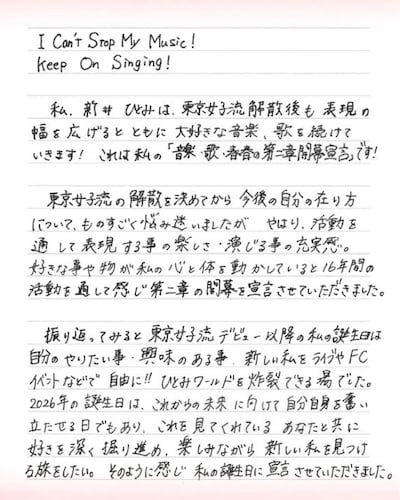 I Can't Stop My Music!
Keep On Singing!
私、新井 ひとみは、東京女子流解散後も 表現の
幅を広げるとともに 大好きな音楽、歌を続けて
いきます! これは私の「音楽・歌・青春の第二章開幕宣言」です!
東京女子流の解散を決めてから 今後の自分の在り方
について、ものすごく悩み迷いましたが やはり、活動を
通して表現する事の楽しさ・演じる事の充実感。
好きな事や物が私の心と体を動かしていると16年間の
活動を通して感じ 第二章の開幕を宣言させていただきました。
振り返ってみると東京女子流デビュー以降の私の誕生日は
自分のやりたい事・興味のある事、新しい私をライブやFC
イベントなどで 自由に!! ひとみワールドを炸裂できる場でした。
2026年の誕生日は、これからの未来に向けて自分自身を奮い
立たせる日でもあり、これを見てくれている あなたと共に
好きを深く掘り進め、楽しみながら 新しい私を見つけ
る旅をしたい。そのように感じ 私の誕生日に宣言させていただきました。